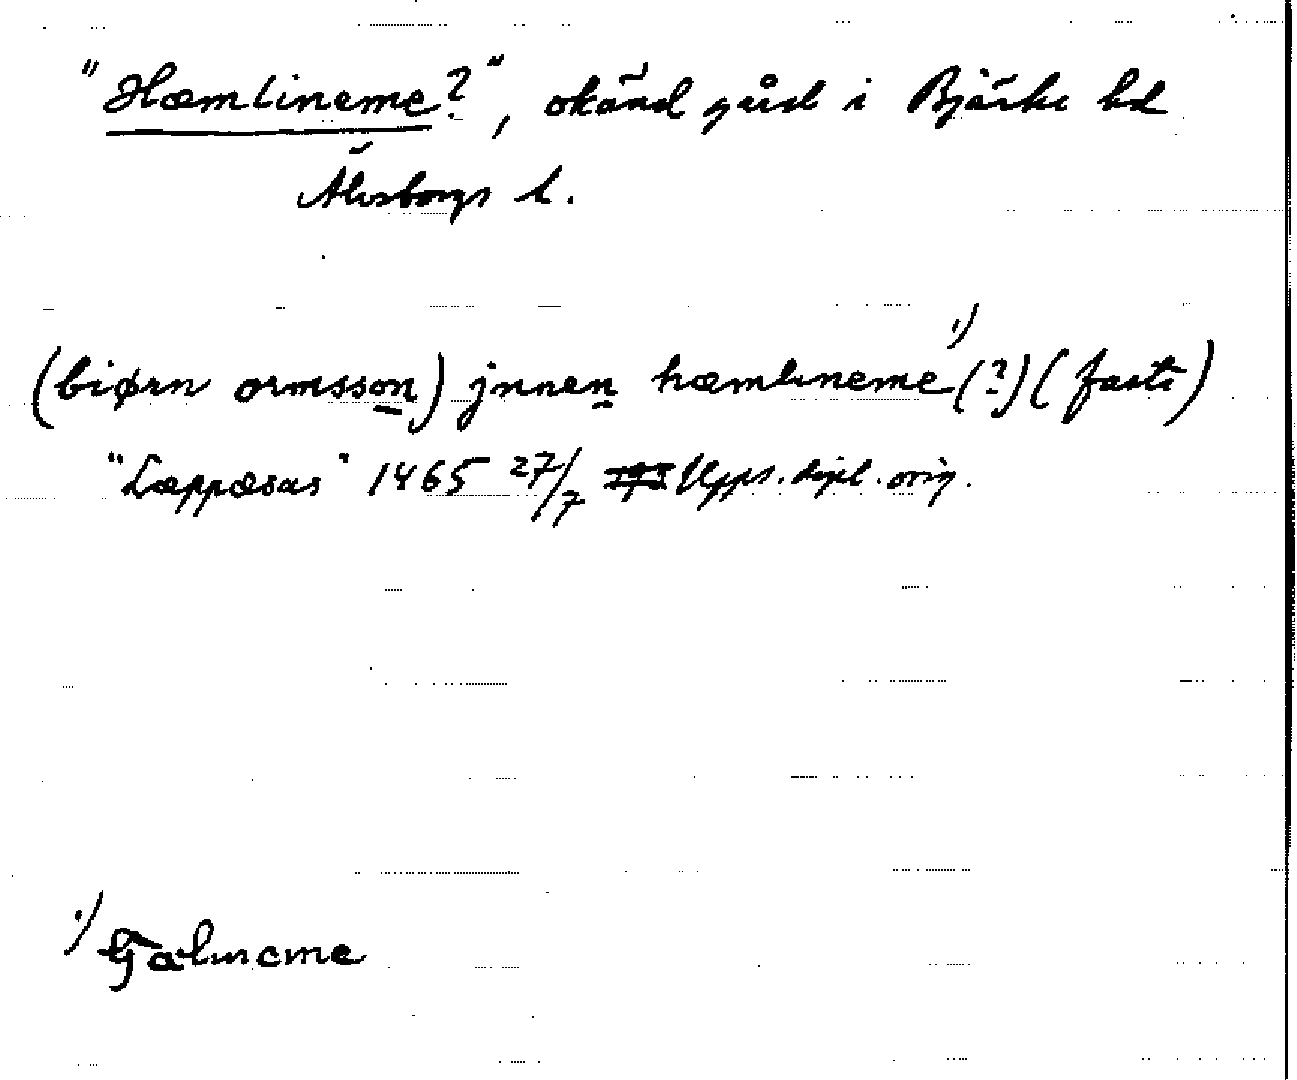 "Hæmlineme?", okänd gård i Bjärke hd
Älvsborgs l.
(biørn ormsson) jnnen hæmlineme 1) (?) (faste)
"Læppæsas" 1465 27/7 Upps. dipl. orig.
1)